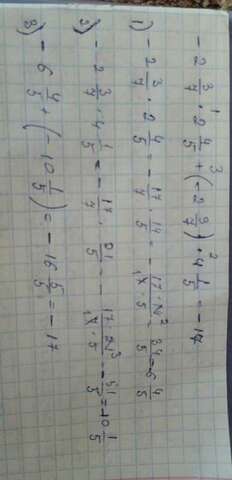 - 2 3/7 · 2 4/5 + (-2 3/7) · 4 1/5 = -17
1 3 2
1) - 2 3/7 · 2 4/5 = - 17/7 · 14/5 = - 17·14 2/1 7·5 = - 34/5 = -6 4/5
2) - 2 3/7 · 4 1/5 = - 17/7 · 21/5 = - 17·21 3/1 7·5 = - 51/5 = -10 1/5
3) - 6 4/5 + (-10 1/5) = - 16 5/5 = -17